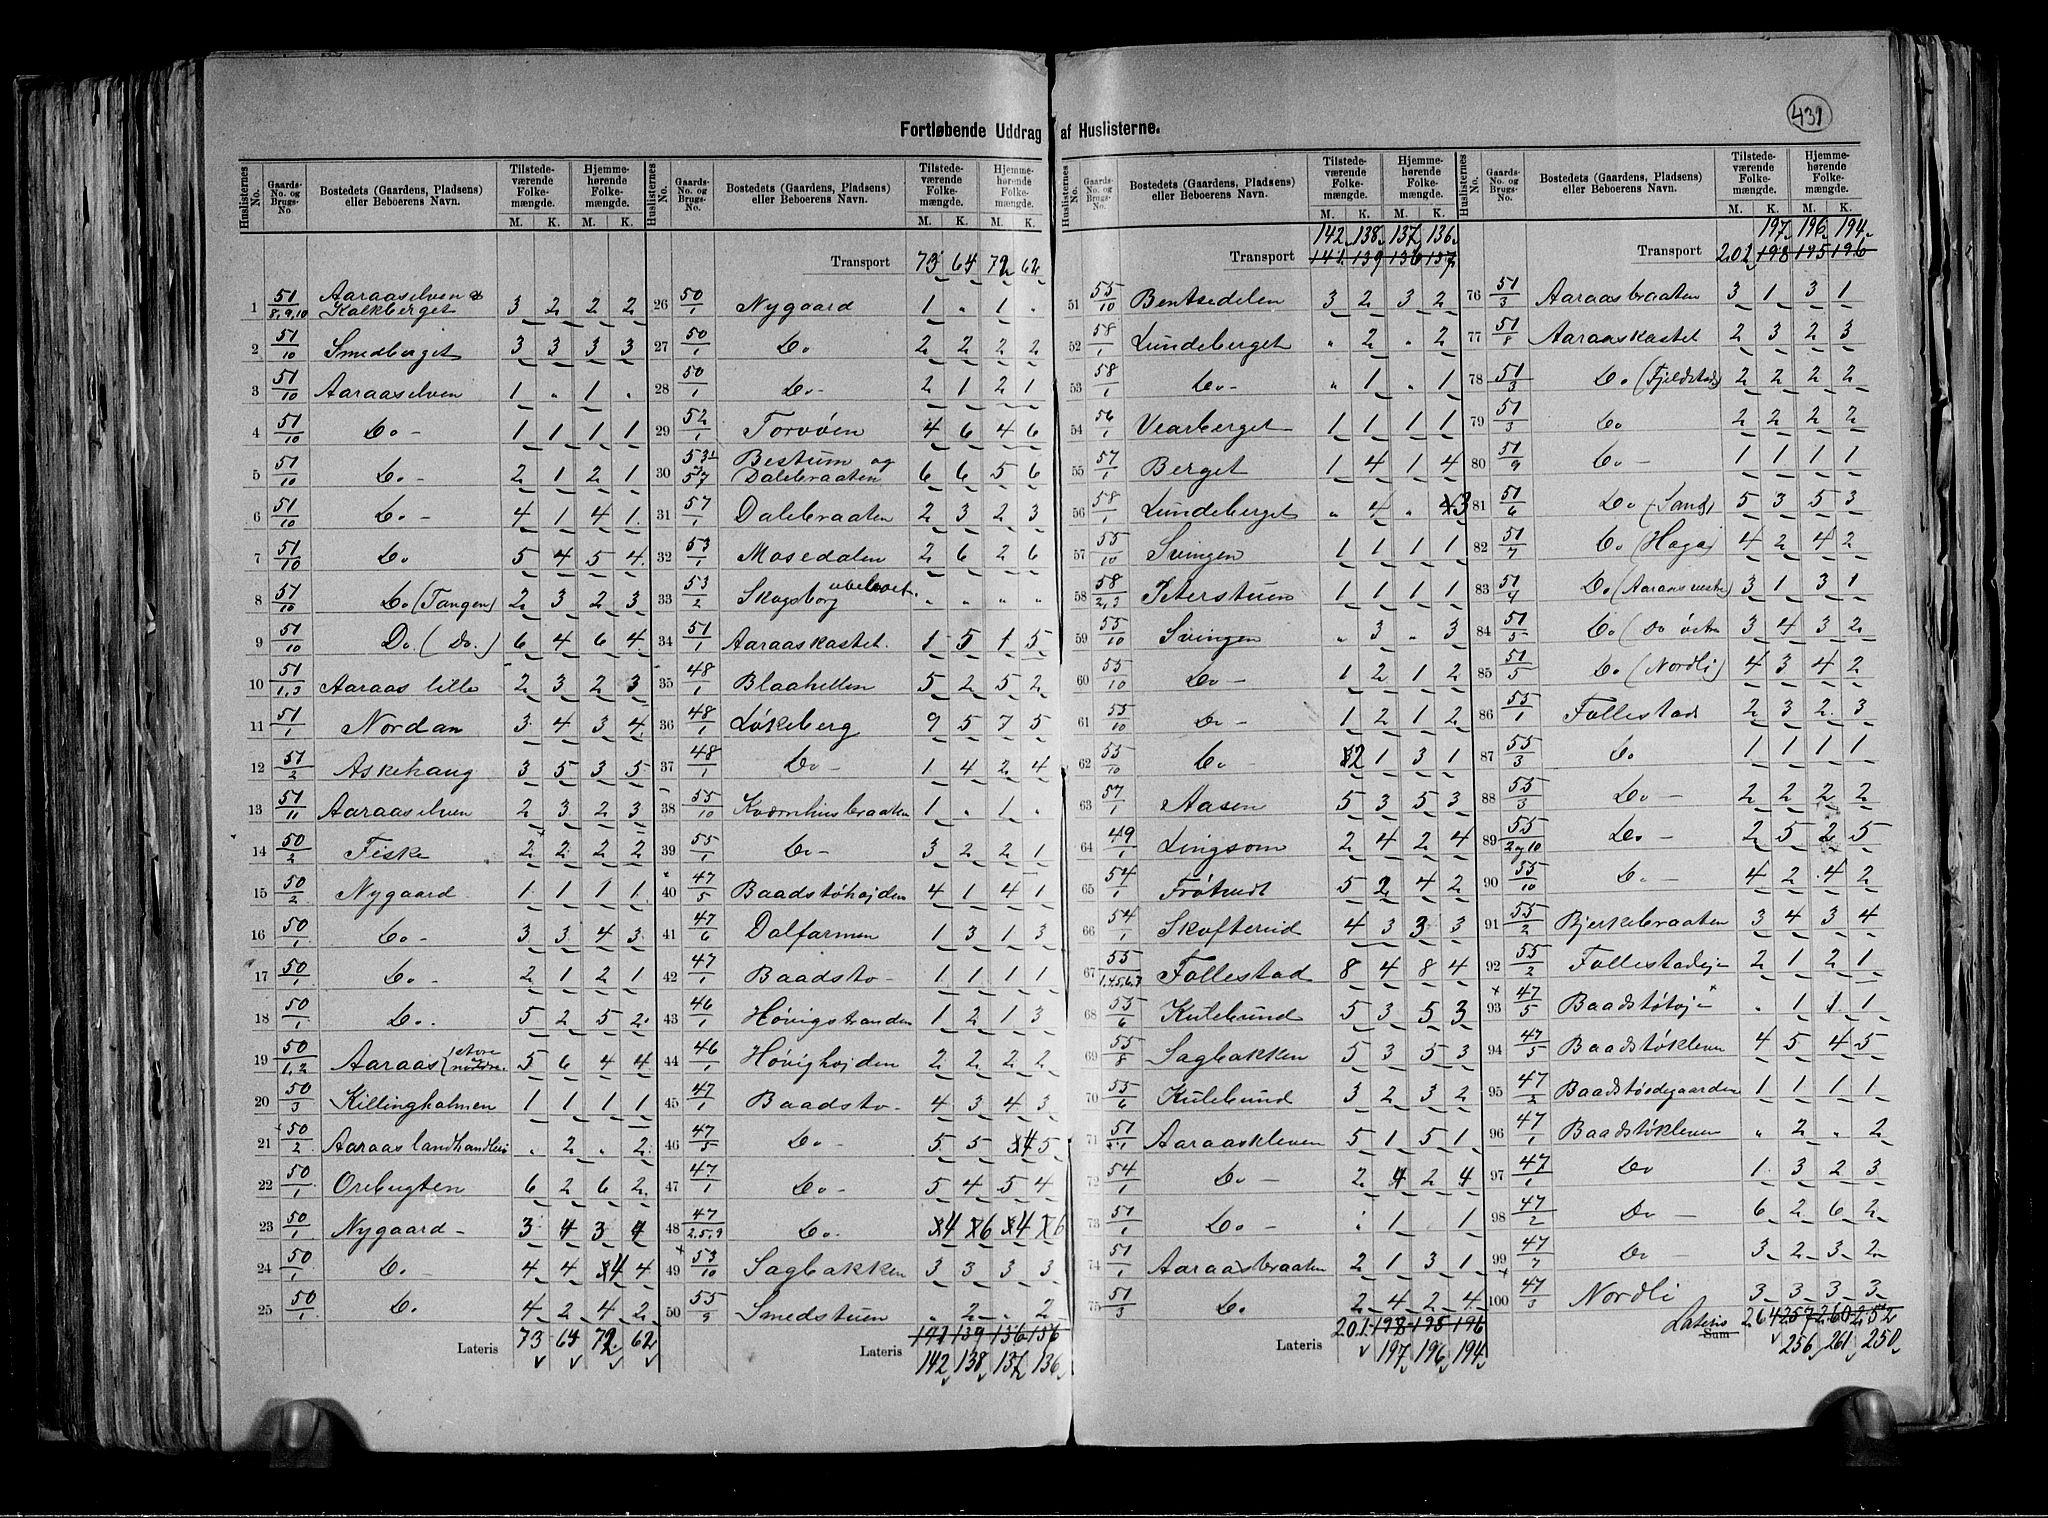 431
Fortløbende Uddrag af Huslisterne.
Huslisternes No. | Gaards-No. og Brugs-No. | Bostedets (Gaardens, Pladsens) eller Beboerens Navn. | Tilstede-værende Folke-mængde. M. K. | Hjemme-hørende Folke-mængde. M. K.
1 51/8,9,10 Aaraaselven & Kalkberget 3 2 2 2
2 51/10 Smedberget 3 3 3 3
3 51/10 Aaraaselven 1 " 1 "
4 51/10 Do - 1 1 1 1
5 51/10 Do - 2 1 2 1
6 51/10 Do - 4 1 4 1
7 51/10 Do 5 4 5 4
8 51/10 Do (Tangen) 2 3 2 3
9 51/10 Do. (Do.) 6 4 6 4
10 51/1,3 Aaraas lille 2 3 2 3
11 51/1 Nordan 3 4 3 4
12 51/2 Askehaug 3 5 3 5
13 51/11 Aaraaselven 2 3 2 3
14 50/2 Fiske 2 2 2 2
15 50/2 Nygaard 1 1 1 1
16 50/1 Do - 3 3 4 3
17 50/1 Do - 2 1 2 1
18 50/1 Do. 5 2 5 2
19 50/1,2 Aaraas (store og nordre 5 6 4 4
20 50/3 Killingholmen 1 1 1 1
21 50/2 Aaraas landhandleri " 2 " 2
22 50/1 Orebugten 6 2 6 2
23 50/1 Nygaard - 3 4 3 4
24 50/1 Do - 4 4 4 4
25 50/1 Do 4 2 4 2
Lateris 73 64 72 62
Transport 73 64 72 62
26 50/1 Nygaard 1 " 1 "
27 50/1 Do. 2 2 2 2
28 50/1 Do - 2 1 2 1
29 52/1 Torvøen 4 6 4 6
30 53/1 57/7 Bestum og Dalebraaten 6 6 5 6
31 57/1 Dalebraaten 2 3 2 3
32 53/1 Mosedalen 2 6 2 6
33 53/2 Skogsborg ubeboet. " " " "
34 51/1 Aaraaskastet. 1 5 1 5
35 48/1 Blaahellen 5 2 5 2
36 48/1 Løkeberg 9 5 7 5
37 48/1 Do - 1 4 2 4
38 55/10 Kværnhusbraaten 1 " 1 "
39 55/1 Do - 3 2 2 1
40 47/5 Baadstøhøjden 4 1 4 1
41 47/6 Dalfarmen 1 3 1 3
42 47/1 Baadstø - 1 1 1 1
43 46/1 Høvigstranden 1 2 1 3
44 46/1 Høvighøjden 2 2 2 2
45 47/1 Baadstø - 4 3 4 3
46 47/5 Do - 5 5 4 5
47 47/1 Do - 5 4 5 4
48 47/2,5,9 Do. 4 6 4 6
49 53/10 Sagbakken 3 3 3 3
50 55/9 Smedstuen " 2 " 2
Lateris 141 139 136 136
142 138 137 136
142 138 137 136
Transport 141 139 136 137
51 55/10 Bentsedelen 3 2 3 2
52 58/1 Lundeberget " 2 " 2
53 58/1 Do - " 1 " 1
54 56/1 Vearberget 1 1 1 1
55 57/1 Berget 1 4 1 4
56 58/1 Lundeberget " 4 " 3
57 55/10 Svingen 1 1 1 1
58 58/2,3 Peterstuen 1 1 1 1
59 55/10 Svingen " 3 " 3
60 55/10 Do - 1 2 1 2
61 55/10 Do - 1 2 1 2
62 55/10 Do - 2 1 3 1
63 57/1 Aasen 5 3 5 3
64 49/1 Lingsom 2 4 2 4
65 54/1 Frøtvedt 5 2 4 2
66 54/1 Skofterud 4 3 3 3
67 55/1,4,5,6,7 Follestad 8 4 8 4
68 55/6 Kulebund 5 3 5 3
69 55/8 Sagbakken 5 3 5 3
70 55/6 Kulebund 3 2 3 2
71 51/1 Aaraaskleven 5 1 5 1
72 54/1 Do - 2 4 2 4
73 51/1 Do - " 1 1
74 51/1 Aaraasbraaten 2 1 3 1
75 51/3 Do. 2 4 2 4
Lateris 201 198 195 196
197 196 194
197 196 194
Transport 201 198 195 196
76 51/3 Aaraasbraaten 3 1 3 1
77 51/8 Aaraaskastet 2 3 2 3
78 51/3 Do (Fjeldstad) 2 2 2 2
79 51/3 Do 2 2 2 2
80 51/9 Do - 1 1 1 1
81 51/6 Do (Sand) 5 3 5 3
82 51/7 Do (Haga) 4 2 4 2
83 51/4 Do (Aaraas vestre) 3 1 3 1
84 51/5 Do (Do østre 3 4 3 2
85 51/5 Do (Nordli) 4 3 4 2
86 55/1 Follestad 2 3 2 3
87 55/3 Do 1 1 1 1
88 55/3 Do - 2 2 2 2
89 55/2 og 10 Do - 2 5 2 5
90 55/10 Do - 4 2 4 2
91 55/2 Bjerkebraaten 3 4 3 4
92 55/2 Follestadeje 2 1 2 1
93 47/5 Baadstøeje " 1 1 1
94 47/5 Baadstøkleven 4 5 4 5
95 47/2 Baadstødegaarden 1 1 1 1
96 47/1 Baadstøkleven " 2 " 2
97 47/1 Do 1 3 2 3
98 47/2 Do - 6 2 6 2
99 47/7 Do - 3 2 3 2
100 47/3 Nordli 3 3 3 3
Lateris Sum 264 257 260 252
256 261 250